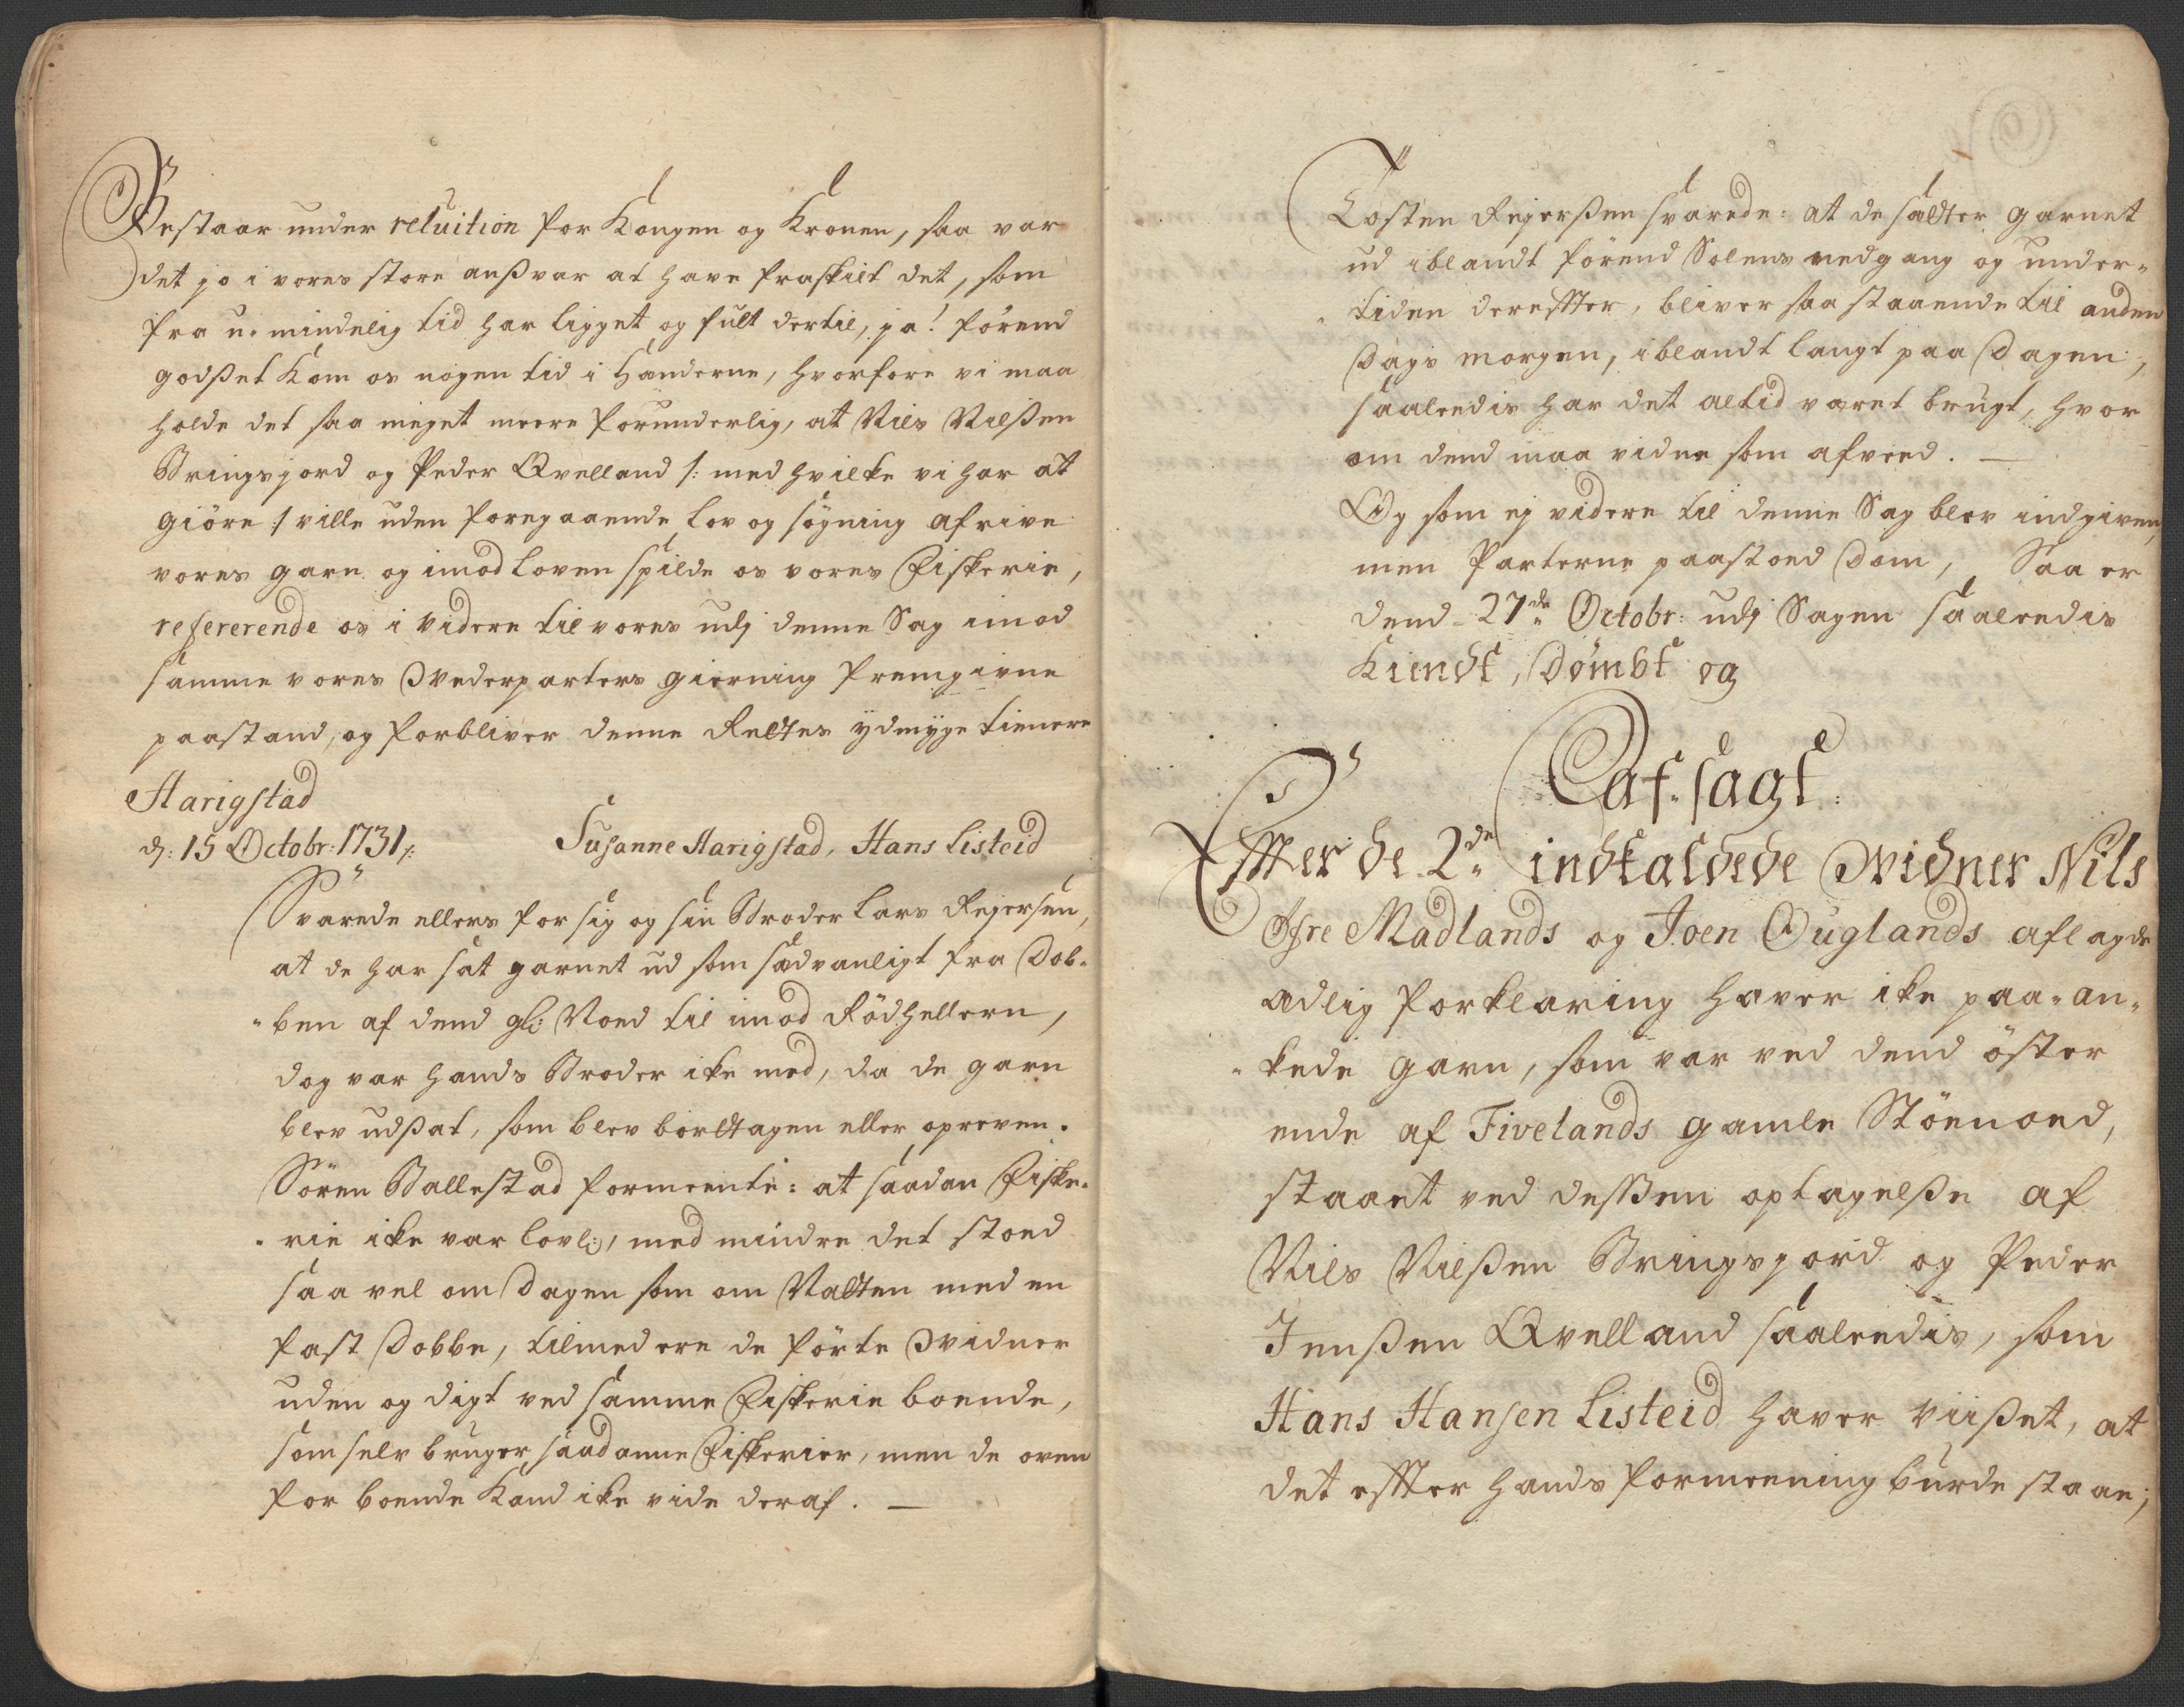 Bestaar under reluition for Kongen og Kronen, saa var
det jo i vores store anßvar at have fraskilt det, som
fra u-mindelig tid har ligget og fult dertil, ja! förend
godßet Kom os nogen tid i Hænderne, hvorfore vi maa
holde det saa meget meere forunderlig, at Niels Nielßen
Bringsjord og Peder Qvelland /: med hvilke vi har at
giöre :/ ville uden foregaaende Lov og sögning afrive
vores garn og imod Loven spilde os vores Fiskerie,
refererende os i videre til vores udj denne Sag imod
samme vores Vederparters gierning fremgivne
paastand, og forbliver denne Rettes ÿdmyge tienere
Harigstad
d: 15 Octobr: 1731/:
Susanne Harigstad, Hans Listeid
Svarede ellers for sig og sin Broder Lars Rejersen,
at de har sat garnet ud som sædvanligt fra Dob-
-ben af dend gl: Noed til imod Rödhellern,
dog var hands Broder ike med, da de garn
blev udßat, som blev borttagen eller opreven.
Sören Ballestad formeente: at saadan Fiske-
-rie ike var lovl:, med mindre det stoed
saa vel om Dagen som om Natten med en
fast Dobbe, tilmed ere de förte Vidner
uden og digt ved samme Fiskerie boende,
som selv bruger saadanne Fiskerier, men de oven
for boende Kand ike vide deraf. —
Tosten Rejerßen svarede: at de sætter garnet
ud iblandt förend Solens nedgang og under-
-tiden derefter, bliver saa staaende til anden
Dags morgen, iblandt langt paa Dagen,
saaledis har det altid været brugt, hvor
om dend maa vidne som afveed. —
Og som ej videre til denne Sag blev indgiven,
men Parterne paastoed Dom, Saa er
dend 27de Octobr: udj Sagen saaledis
Kiendt, Dömbt og
af-sagt:
Efter de 2de indkaldede Vidner Nils
Öfre Madlands og Joen Ouglands aflagde
ædlig forklaring haver ike paa-an-
-kede garn, som var ved dend öster
ende af Fivelands gamle Stöenoed,
staaet ved deßen optagelße af
Niels Nielßen Bringsjord og Peder
Jenßen Qvelland saaledis, som
Hans Hansen Listeid haver viißet, at
det efter hands formeening burde staae;